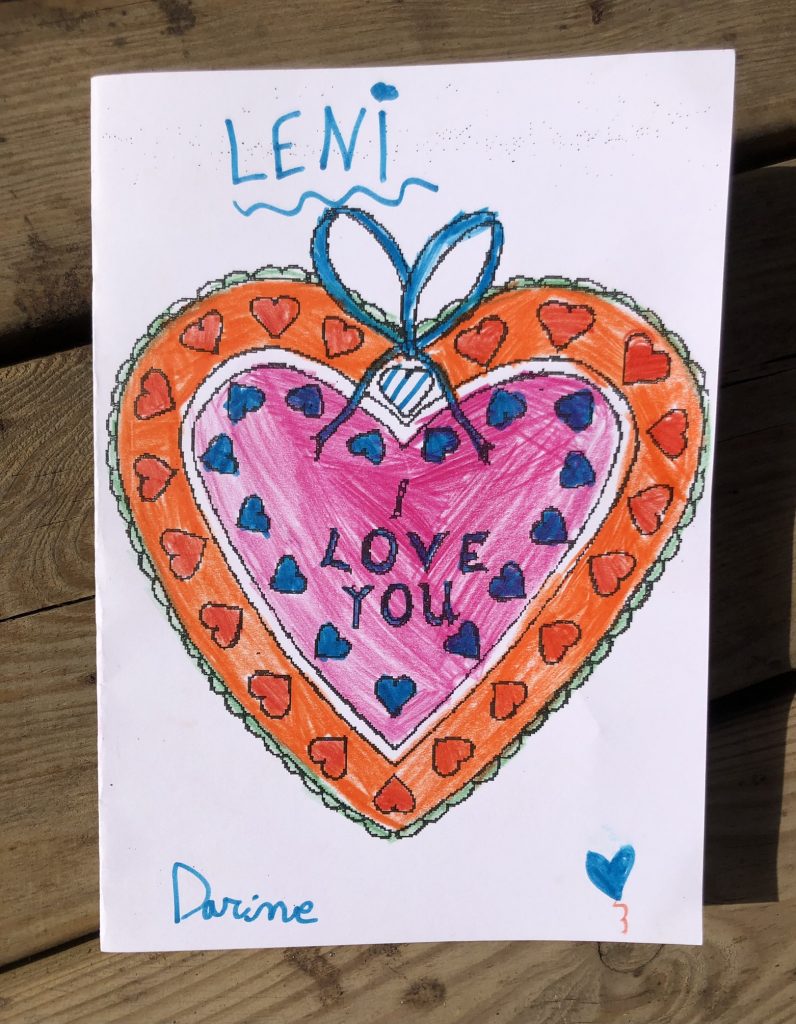 LENi
I
LOVE
YOU
Darine
3